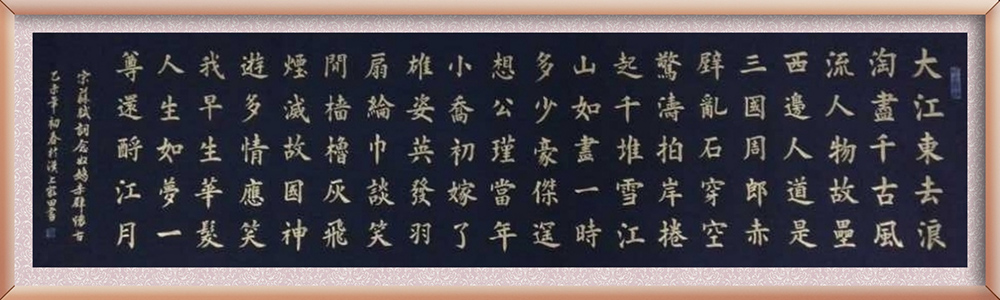 大江東去浪
淘盡千古風
流人物故壘
西邊人道是
三國周郎赤
壁亂石穿空
驚濤拍岸捲
起千堆雪江
山如畫一時
多少豪傑遥
想公瑾當年
小喬初嫁了
雄姿英發羽
扇綸巾談笑
間檣櫓灰飛
煙滅故國神
遊多情應笑
我早生華髮
人生如夢一
尊還酹江月
宋蘇軾詞念奴嬌赤壁懷古
乙未年初春於漢上家田書